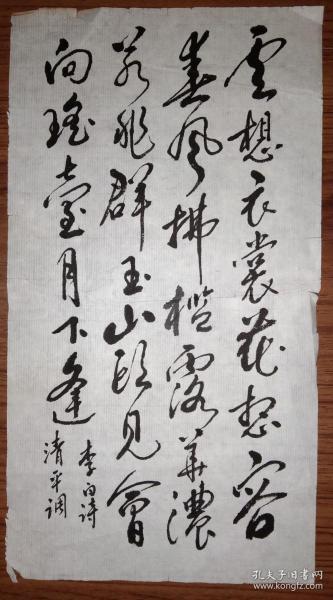 雲想衣裳花想容
春風拂檻露華濃
若非群玉山頭見會
向瑤臺月下逢
李白詩
清平调
孔夫子旧书网
www.kongfz.com